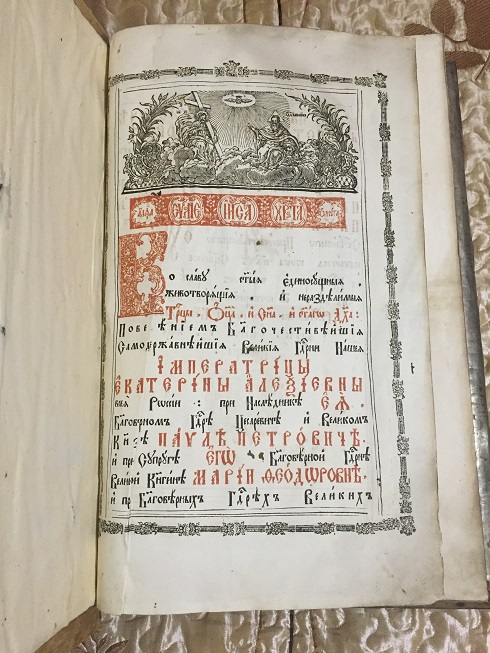 Во славу ст҃ыѧ единосꙋщныѧ,
животворѧщиѧ, и нераздѣлимыѧ
Трⷪ҇цы, Оц҃а, и Сн҃а, и ст҃агѡ Дх҃а:
Повелѣнїемъ Благочестивѣйшїѧ
Самодержавнѣйшїѧ Великїѧ Гдⷭ҇рни Нашеѧ
ІМПЕРАТРИЦЫ
ЕКАТЕРИНЫ АЛЕѮІЕВНЫ
всеѧ Рѡссїи: при Наслѣдникѣ ЕѦ,
Благовѣрномъ Гдⷭ҇рѣ Цесаревичѣ и Великомъ
Кн҃зѣ ПАѴЛѢ ПЕТРОВИЧѢ.
и при Сꙋпрꙋгѣ ЕГѠ Благовѣрной Гдⷭ҇рнѣ
Великой Кнѧгинѣ МАРІИ ѲЕѠДѠРОВНѢ.
и при Благовѣрныхъ Гдⷭ҇рехъ Великихъ